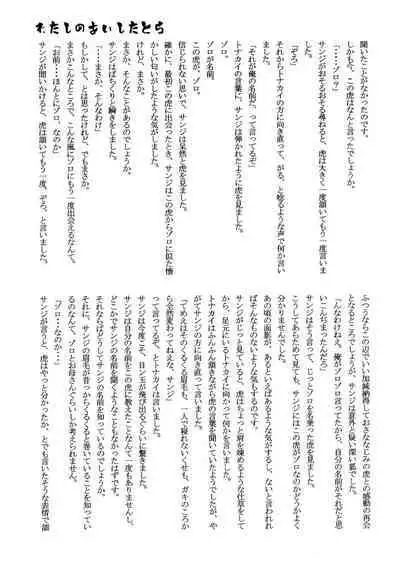 わたしのあいしたとら
聞いたことがなかったのです。
しかもぞ、この虎はなんと言ったでしょうか。
「・・・ゾロ？」
サンジがおそるおそる尋ねると、虎は大きく一度頷いてもう一度言いま
した。
「ぞろ」
それからトナカイの方に向き直って、がる、と唸るような声で何か言い
ました。
「それが俺の名前だ、って言ってるぞ」
トナカイの言葉に、サンジは弾かれたように虎を見ました。
ゾロが名前。
この虎が、ゾロ。
信じられない思いで、サンジは呆然と虎を見ました。
確かに、最初にこの虎に出会ったとき、サンジはこの虎からゾロに似た懐
かしい匂いがしたような気がしました。
けれど、まさか。
まさか、そんなことがあるのでしょうか。
サンジはぱちくりと瞬きをしました。
「・・・まさか、そんなわけ」
もしかして、とは思ったけれど、でもまさか。
まさかこんなところで、こんな風にゾロにもう一度出会えるなんて。
「お前・・・ほんとにゾロ、なのか」
サンジが問いかけると、虎は頷いてもう一度、ぞろ、と言いました。
ふつうならこの辺でいい加減納得しておさななじみの虎との感動の再会
となるところでしょうが、サンジは意外と疑い深い狐でした。
「んなわけねえ。俺がゾロゾロ言ってたから、自分の名前がそれだと思
いこんじまったんだろ」
サンジはそう言って、じっとゾロを名乗った虎を見ました。
こうしてあらためて見ても、サンジにはこの虎がゾロなのかどうかよく
分かりませんでした。
あの頃の面影が、あるといえばあるような気がするし、ないと言われれ
ばそんなもないような気もするのです。
サンジがじっと見ていると、虎はちょっと肩を竦めるような仕草をして
から、足元にいるトナカイに向かって何かを言いました。
トナカイはふんふん頷きながら虎の言葉を聞いていたようでしたが、や
がてサンジの方に向き直って言いました。
「てめえはそのぐるぐる眉毛も、一人で寝れないくせも、ガキのころか
ら全然変わってねえな、サンジ」
って言ってるぞ、とトナカイは言いました。
サンジは今度こそ、目ン玉が飛び出るくらいに驚きました。
サンジは自分の名前をこの虎に教えたことなんて一度もありませんし、
どこかでサンジの名前を聞くようなこともなかったはずです。
それならばどうしてサンジの名前を知っているのでしょうか。
それに、サンジの眉毛が昔っからくるくると巻いていることを知ってい
るのなんて、ゾロとお母さんくらいしか考えられません。
「ゾロ・・・なのか・・・」
サンジが言うと、虎はやっと分かったか、とでも言いたそうな表情で頷